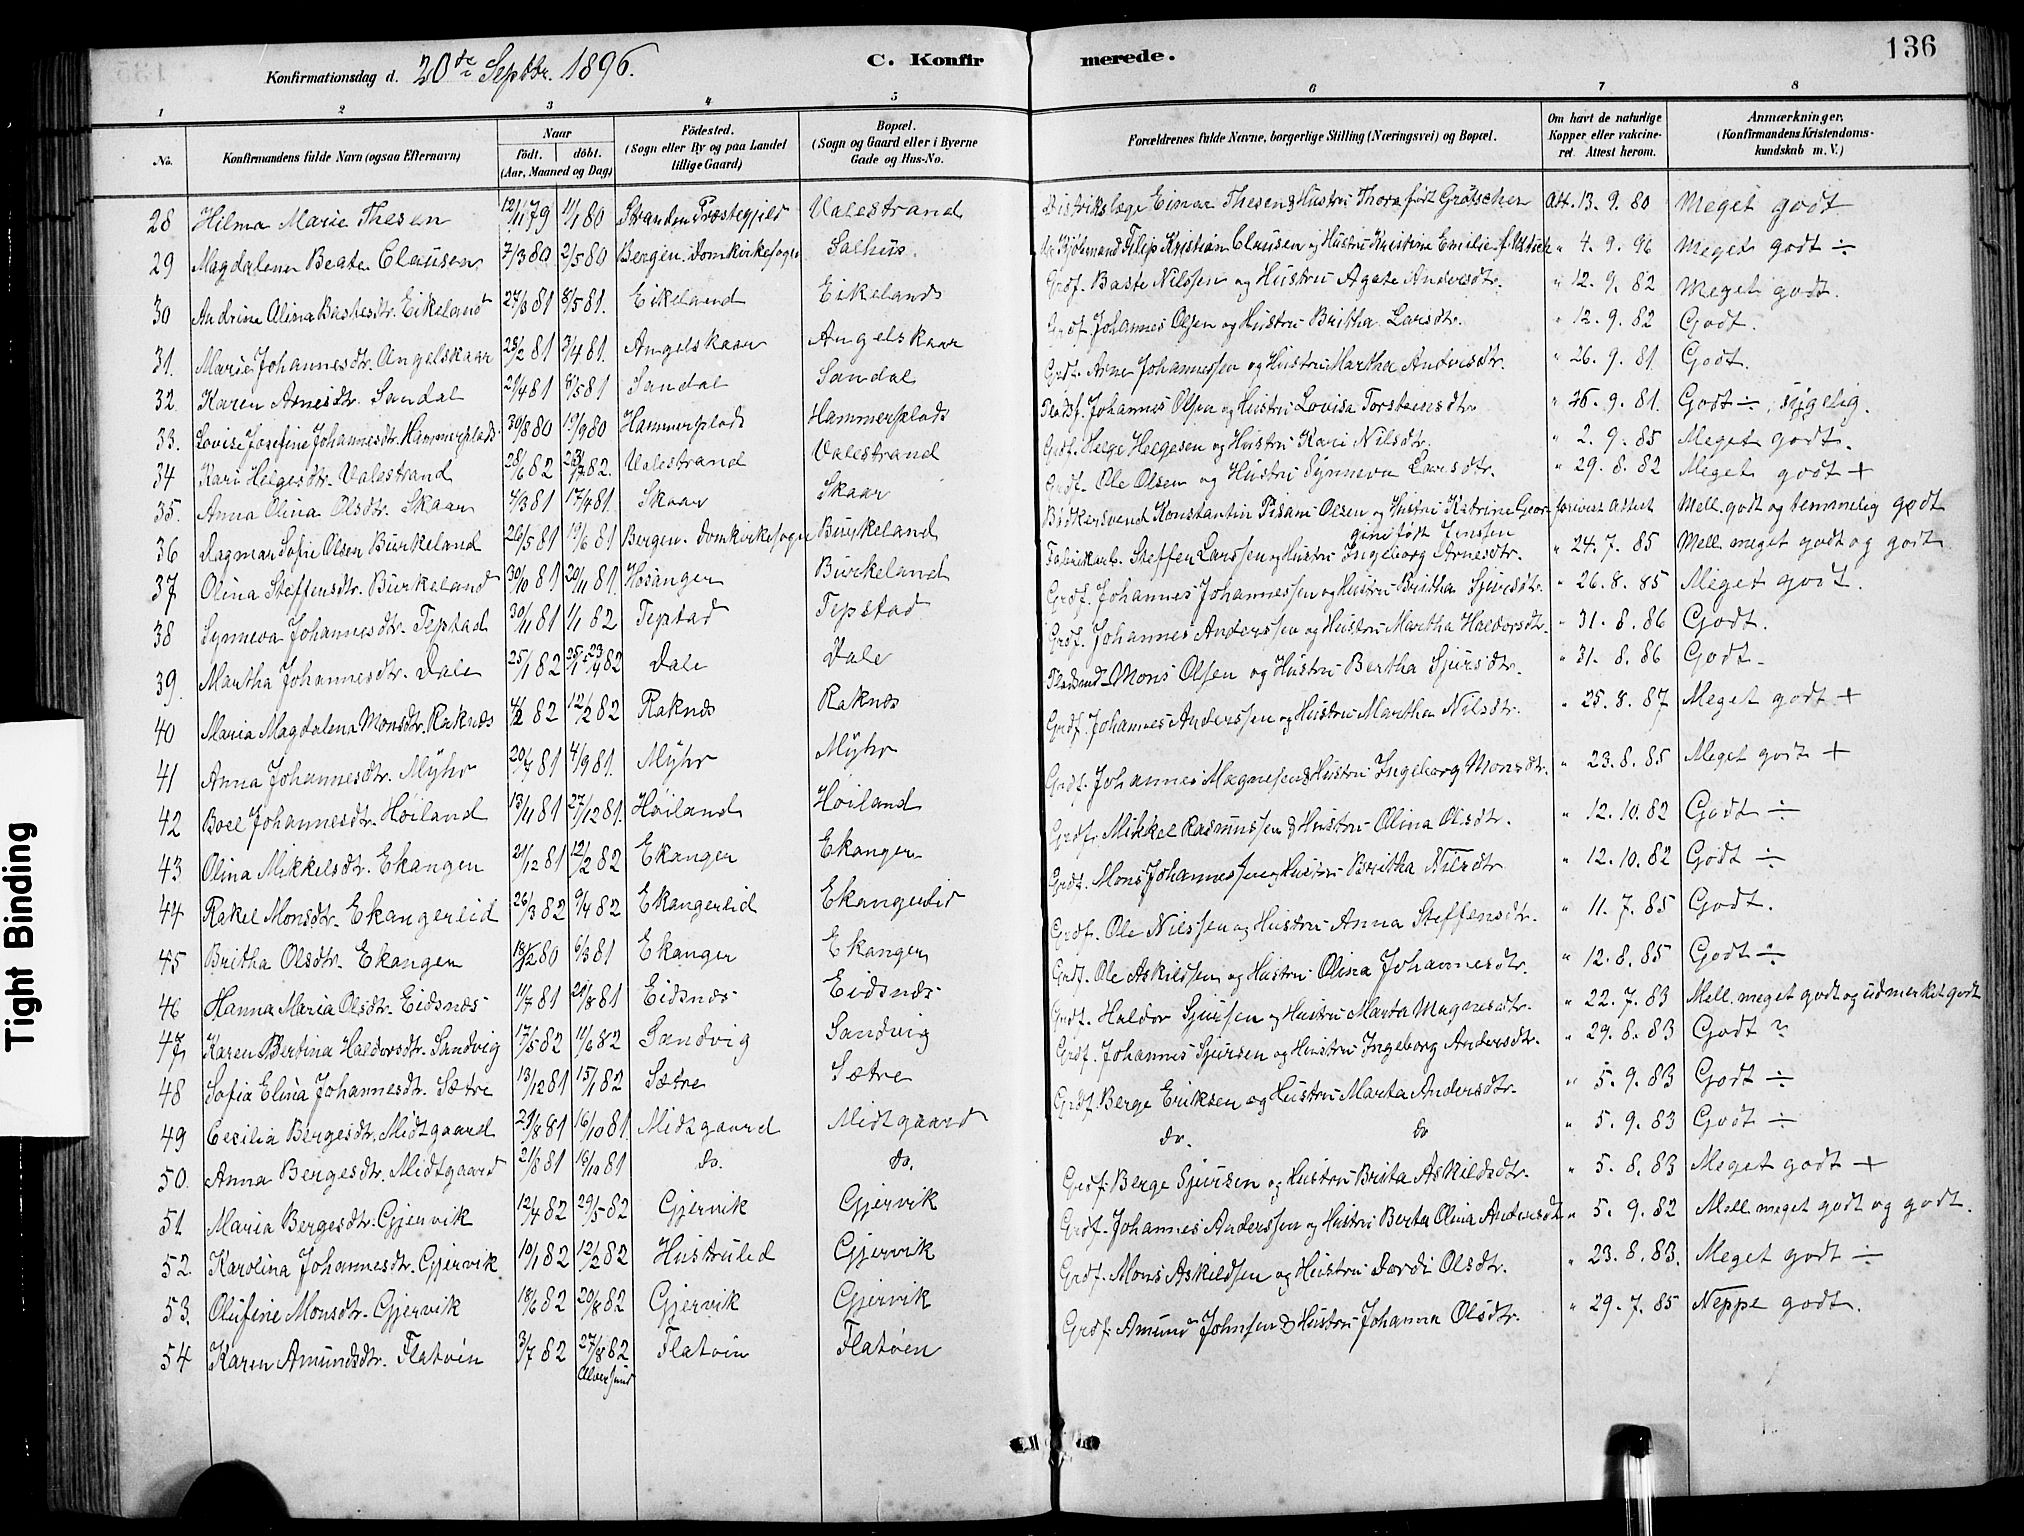 136
Konfirmationsdag d. 20de Septbr. 1896.
C. Konfirmerede.
1 2 3 4 5 6 7 8
No.
Konfirmandens fulde Navn (ogsaa Efternavn)
Naar
födt. döbt.
(Aar, Maaned og Dag)
Födested.
(Sogn eller By og paa Landet
tillige Gaard)
Bopæl.
(Sogn og Gaard eller i Byerne
Gade og Hus-No.
Forældrenes fulde Navne, borgerlige Stilling (Næringsvei) og Bopæl.
Om havt de naturlige
Kopper eller vakcine-
ret. Attest herom.
Anmærkninger.
(Konfirmandens Kristendoms-
kundskab m. V.)
28 Hilma Marie Thesen 12/11 79 1/1 80 Stranden Præstegjeld Valestrand Distriktslæge Eimar Thesen & Hustru Thora født Grötschen Att. 13. 9. 80 Meget godt
29 Magdalena Beate Clausen 7/3 80 2/5 80 Bergen. Domkirkesogn Salhus. Filip Kristian Clausen og Hustru Kristine Emilie " 4. 9. 96 Meget godt ÷
30 Andrine Olina Bastesdtr. Eikeland 27/3 81 8/5 81. Eikeland Eikeland Grdf. Baste Nilssen og Hustru Agate Andersdtr. " 12. 9. 82 Meget godt.
31. Marie Johannesdtr. Angelskaar 25/2 81 3/4 81. Angelskaar Angelskaar Grdf. Johannes Olsen og Hustru Britha Larsdtr. " 12. 9. 82 Godt.
32. Karen Arnesdtr. Sandal 2/4 81 8/5 81 Sandal Sandal Grdf. Arne Johannessen og Hustru Martha Andersdtr. " 26. 9. 81. Godt.
33. Lovise Josefine Johannesdtr. Hammersplads 30/8 80 19/9 80 Hammersplads Hammersplads Pladsf. Johannes Olsen og Hustru Lovisa Torsteinsdtr. " 26. 9. 81. Godt ÷, sygelig.
34 Kari Helgesdtr. Valestrand 28/6 82 23/7 82. Valestrand Valestrand Grdf. Helge Helgesen og Hustru Kari Nilsdtr. " 2. 9. 85 Meget godt.
35. Anna Olina Olsdtr. Skaar 4/3 81 17/4 81. Skaar Skaar Grdf. Ole Olsen og Hustru Synneva Larsdtr. " 29. 8. 82 Meget godt +
36 Dagmar Sofie Olsen Burkeland 26/5 81 19/6 81 Bergen. Domkirkesogn Burkeland Bødkersvend Konstantin Olsen og Hustru Katrine Georgine født Jenssen Attest Mell. godt og temmelig godt
37 Olina Steffensdtr. Burkeland 30/10 81 20/11 81. Hosanger Burkeland Fabrikarb. Steffen Larssen og Hustru Ingeborg Arnesdtr. " 24. 7. 85 Mell. meget godt og godt
38 Synneva Johannesdtr. Tepstad 30/11 81 1/1 82 Tepstad Tepstad Grdf. Johannes Johannessen og Hustru Britha Sjursdtr. " 26. 8. 85 Meget godt.
39. Martha Johannesdtr. Dale 25/1 82 25/1 - 23/4 82 Dale Dale Grdf. Johannes Anderssen og Hustru Martha Haldorsdtr. " 31. 8. 86 Godt.
40 Maria Magdalena Monsdtr. Raknæs 4/2 82 12/2 82 Raknæs Raknæs Mons Olsen og Hustru Bertha Sjursdtr. " 31. 8. 86 Godt.
41 Anna Johannesdtr. Myhr 20/7 81 4/9 81. Myhr Myhr Grdf. Johannes Anderssen og Hustru Martha Nilsdtr. " 25. 8. 87 Meget godt +
42 Boel Johannesdtr. Høiland 13/11 81 27/12 81. Høiland Høiland Grdf. Johannes Magnesen & Hustru Ingeborg Monsdtr. " 23. 8. 85 Meget godt +
43 Olina Mikkelsdtr. Ekanger 21/12 81 12/2 82 Ekanger Ekanger Grdf. Mikkel Rasmussen & Hustru Olina Olsdtr. " 12. 10. 82 Godt ÷
44 Rakel Monsdtr. Ekangerlid 26/3 82 9/4 82 Ekangerlid Ekangerlid Grdf. Mons Johannessen og Hustru Britha Nilsdtr " 12. 10. 82 Godt ÷
45 Britha Olsdtr. Ekanger 18/12 80 6/3 81 Ekanger Ekanger Grdf. Ole Nilssen og Hustru Anna Steffensdtr. " 11. 7. 85 Godt.
46 Hanna Maria Olsdtr. Eidsnæs 11/7 81 21/8 81 Eidsnæs Eidsnæs Grdf. Ole Askilssen og Hustru Olina Johannesdtr. " 12. 8. 85 Godt ÷
47 Karen Bertina Haldorsdtr. Sandvig 17/5 82 11/6 82 Sandvig Sandvig Grdf. Haldor Sjursen og Hustru Marta Magnesdtr. " 22. 7. 83 Mell. meget godt og udmerket godt
48 Sofia Elina Johannesdtr. Sætre 13/12 81 15/1 82 Sætre Sætre Grdf. Johannes Sjursen og Hustru Ingeborg Andersdtr. " 29. 8. 83 Godt ?
49 Cecilia Bergesdtr. Midtgaard 21/8 81 16/10 81. Midtgaard Midtgaard Grdf. Berge Eriksen og Hustru Marta Andersdtr. " 5. 9. 83 Godt ÷
50. Anna Bergesdtr. Midtgaard 21/8 81 16/10 81 do. do. do. do " 5. 9. 83 Godt ÷
51 Maria Bergesdtr. Gjervik 12/4 82 29/5 82 Gjervik Gjervik Grdf. Berge Sjursen og Hustru Brita Askildsdtr. " 5. 8. 83 Meget godt +
52. Karolina Johannesdtr. Gjervik 10/1 82 12/2 82 Hustruled Gjervik Grdf. Johannes Anderssen og Hustru Berta Olina Andersdtr " 5. 9. 82 Mell. meget godt og godt.
53. Olufine Monsdtr. Gjervik 18/6 82 20/8 82 Gjervik Gjervik Grdf. Mons Askildsen og Hustru Dordi Olsdtr. " 23. 8. 83. Meget godt ÷
54 Karen Amundsdtr. Flatøen 3/7 82 27/8 82 Alversund Flatøen Flatøen Grdf. Amund Johnsen & Hustru Johanna Olsdtr. " 29. 7. 85 Neppe godt.
Tight Binding